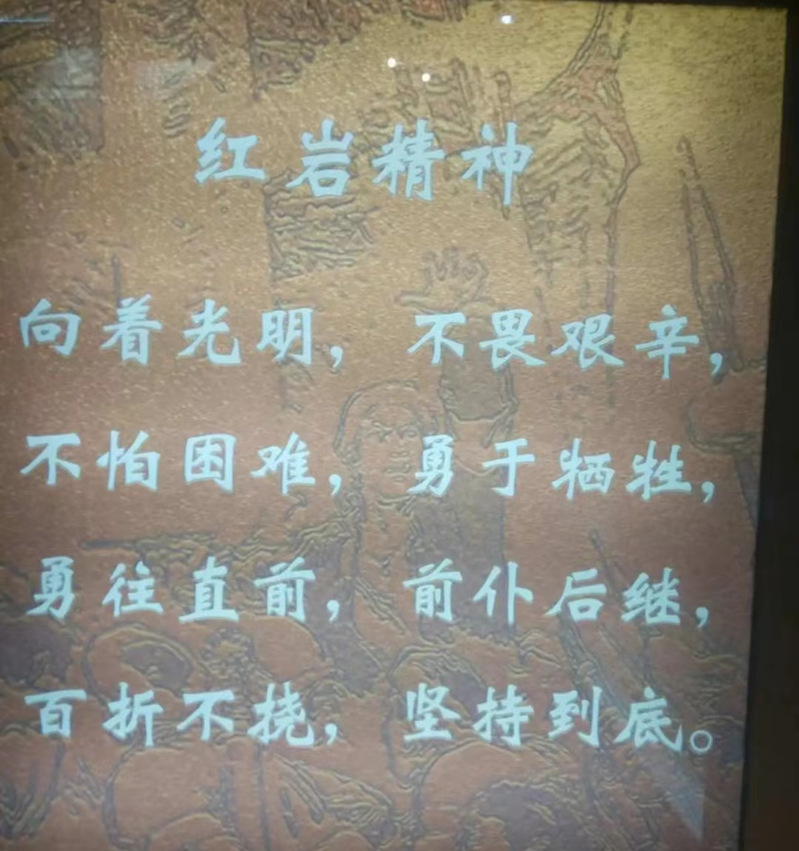 红岩精神
向着光明，不畏艰辛，
不怕困难，勇于牺牲，
勇往直前，前仆后继，
百折不挠，坚持到底。